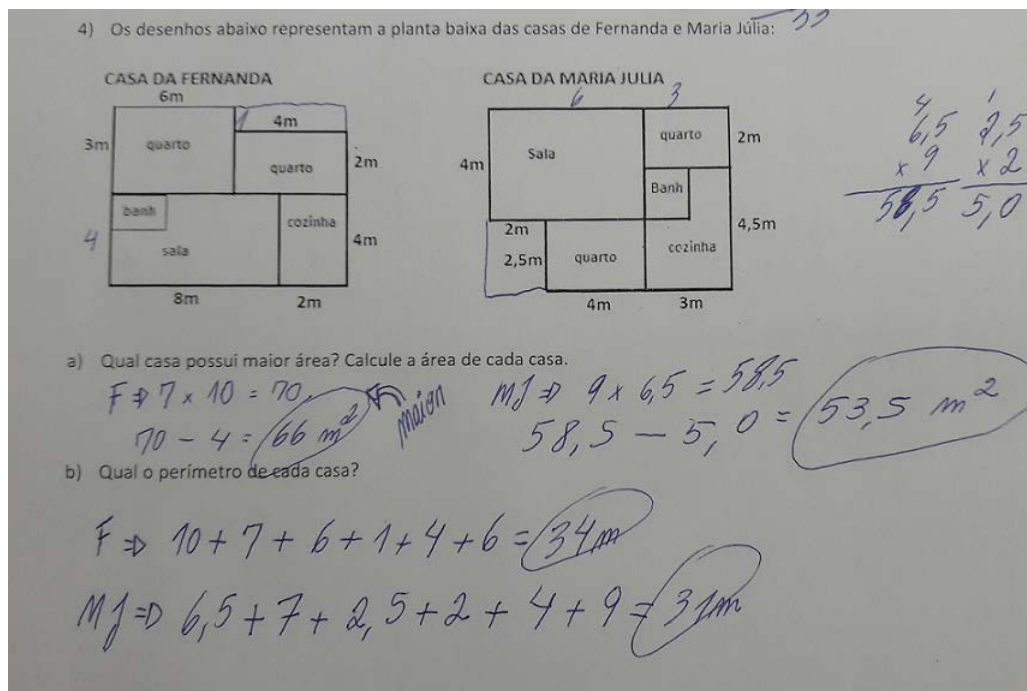 55
4) Os desenhos abaixo representam a planta baixa das casas de Fernanda e Maria Júlia:
CASA DA FERNANDA
6m
4m
3m
quarto
quarto
2m
banh
cozinha
4
sala
4m
8m
2m
CASA DA MARIA JULIA
6 3
quarto
2m
Sala
4m
Banh
2m
4,5m
2,5m
quarto
cozinha
4m
3m
4 1
6,5 2,5
x 9 x 2
58,5 5,0
a) Qual casa possui maior área? Calcule a área de cada casa.
F ⇒ 7 x 10 = 70
70 - 4 = 66 m²
maior
MJ ⇒ 9 x 6,5 = 58,5
58,5 - 5,0 = 53,5 m²
b) Qual o perímetro de cada casa?
F ⇒ 10 + 7 + 6 + 1 + 4 + 6 = 34m
MJ ⇒ 6,5 + 7 + 2,5 + 2 + 4 + 9 = 31m